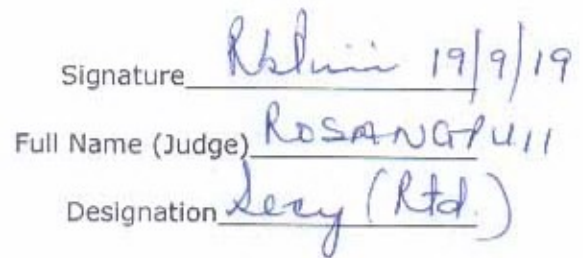 Signature 19/9/19
Full Name (Judge) ROSANGPUII
Designation Secy (Rtd.)